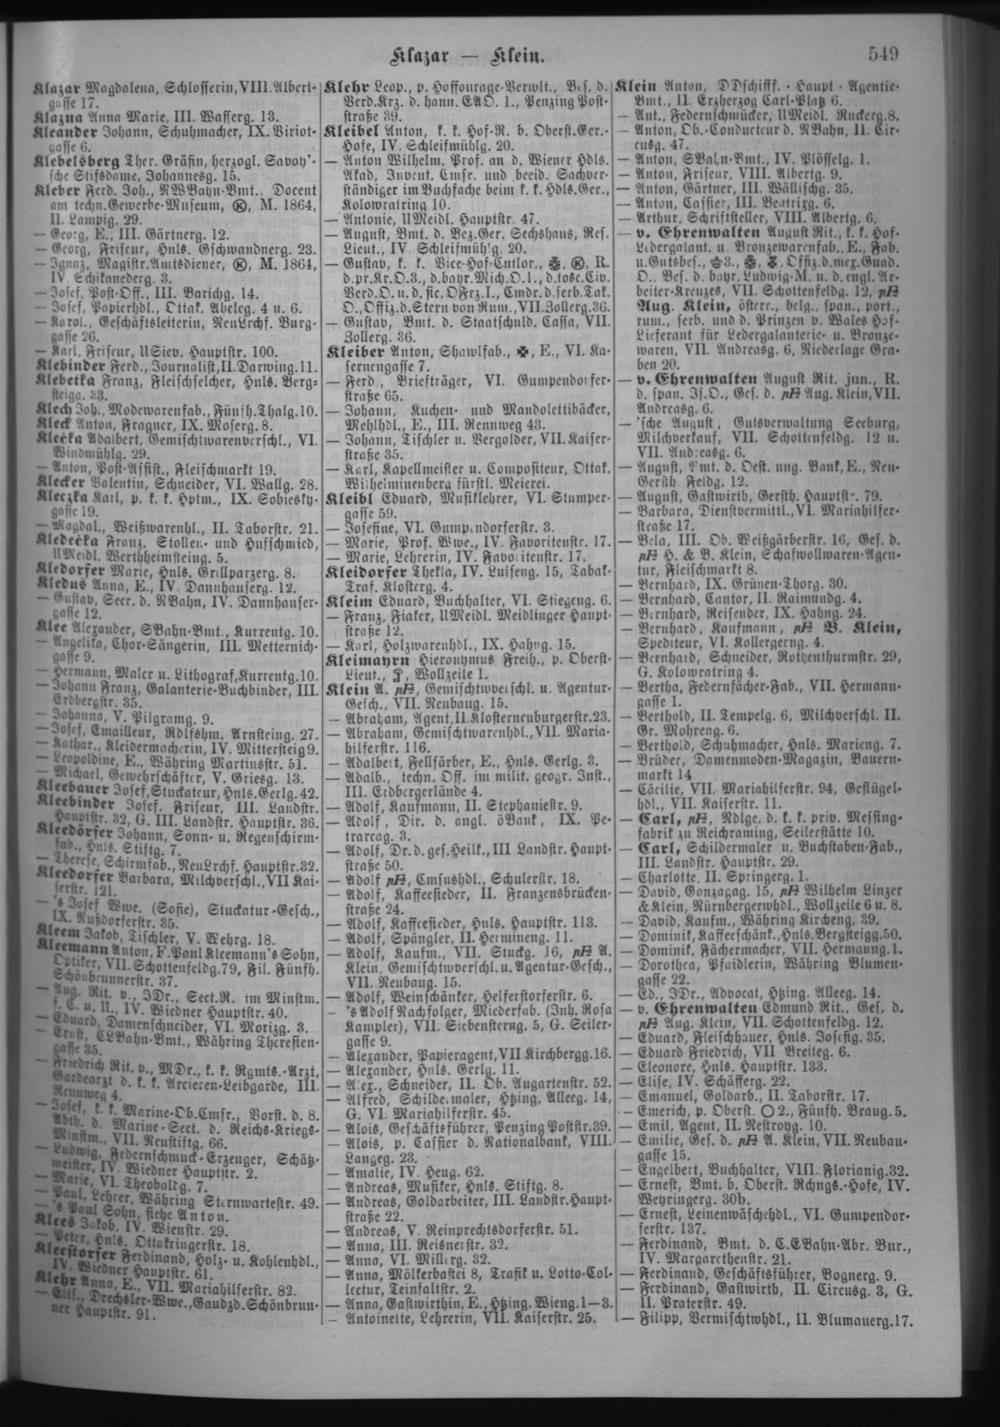 Klazar — Klein.
549
Klazar Magdalena, Schlosserin, VIII. Albert-
gasse 17.
Klazna Anna Marie, III. Wasserg. 13.
Kleander Johann, Schuhmacher, IX. Viriot-
gasse 6.
Klebelsberg Ther. Gräfin, herzogl. Savoy'-
sche Stifsdame, Johannesg. 15.
Kleber Ferd. Joh., NWBahn-Bmt.. Docent
am techn. Gewerbe-Museum, Ⓚ, M. 1864,
II. Lampig. 29.
— Georg, E., III. Gärtnerg. 12.
— Georg, Friseur, Hnls. Gschwandnerg. 23.
— Ignaz, Magistr. Amtsdiener, Ⓚ, M. 1864,
IV. Schikanederg. 3.
— Josef, Post-Off., III. Barichg. 14.
— Josef, Papierhdl., Ottak. Abeleg. 4 u. 6.
— Karol., Geschäftsleiterin, NeuLrchf. Burg-
gasse 26.
— Karl, Friseur, USiev. Hauptstr. 100.
Klebinder Ferd., Journalist, II. Darwing. 11.
Klebetka Franz, Fleischselcher, Hnls. Berg-
steigg. 33.
Klech Joh., Modewarenfab., Fünfh. Thalg. 10.
Kleck Anton, Fragner, IX. Moserg. 8.
Klecka Adalbert, Gemischtwarenverschl., VI.
Windmühlg. 29.
— Anton, Post-Assist., Fleischmarkt 19.
Klecker Valentin, Schneider, VI. Wallg. 28.
Kleczka Karl, p. k. k. Hptm., IX. Sobiesky-
gasse 19.
— Magdal., Weißwarenhl., II. Taborstr. 21.
Kledecka Franz, Stollen- und Hufschmied,
UMeidl. Werthheimsteing. 5.
Kledorfer Marie, Hnls. Grillparzerg. 8.
Kledus Anna, E., IV. Dannhauserg. 12.
— Gustav, Secr. d. NBahn, IV. Dannhauser-
gasse 12.
Klee Alexander, SBahn-Bmt., Kurrentg. 10.
— Angelika, Chor-Sängerin, III. Metternich-
gasse 9.
— Hermann, Maler u. Lithograf, Kurrentg. 10.
— Johann Franz, Galanterie-Buchbinder, III.
Erdbergstr. 35.
— Johanna, V. Pilgramg. 9.
— Josef, Emailleur, Rdlfshm. Arnsteing. 27.
— Kathar., Kleidermacherin, IV. Mittersteig 9.
— Leopoldine, E., Währing Martinsstr. 51.
— Michael, Gewehrschäfter, V. Griesg. 13.
Kleebauer Josef, Stuckateur, Hnls. Gerlg. 42.
Kleebinder Josef, Friseur, III. Landstr.
Hauptstr. 32, G. III. Landstr. Hauptstr. 36.
Kleedörfer Johann, Sonn- u. Regenschirm-
fab., Hnls. Stiftg. 7.
— Therese, Schirmfab., NeuLrchf. Hauptstr. 32.
Kleedorfer Barbara, Milchverschl., VII Kai-
serstr. 121.
— 's Josef Wwe. (Sofie), Stuckatur-Gesch.,
IX. Nußdorferstr. 35.
Kleem Jakob, Tischler, V. Wehrg. 18.
Kleemann Anton, F. Paul Kleemann's Sohn,
Optiker, VII. Schottenfeldg. 79, Fil. Fünfh.
Schönbrunnerstr. 37.
— Aug. Rit. v., JDr., Sect.R. im Minstm.
f. C. u. U., IV. Wiedner Hauptstr. 40.
— Eduard, Damenschneider, VI. Morizg. 3.
— Ernst, CLBahn-Bmt., Währing Theresien-
gasse 35.
— Friedrich Rit. v., MDr., k. k. Rgmts.-Arzt,
Gardearzt d. k. k. Arcieren-Leibgarde, III.
Rennweg 4.
— Josef, k. k. Marine-Ob.Cmsr., Vorst. d. 8.
Abth. d. Marine-Sect. d. Reichs-Kriegs-
Minstm., VII. Neustiftg. 66.
— Ludwig, Federschmuck-Erzeuger, Schätz-
meister, IV. Wiedner Hauptstr. 2.
— Marie, VI. Theobaldg. 7.
— Paul, Lehrer, Währing Sternwartestr. 49.
— 's Paul Sohn, siehe Anton.
Klees Jakob, IV. Wienstr. 29.
— Peter, Hnls. Ottakringerstr. 18.
Kleestorfer Ferdinand, Holz- u. Kohlenhdl.,
IV. Wiedner Hauptstr. 61.
Klehr Anna, E., VII. Mariahilferstr. 82.
— Elis., Drechsler-Wwe., Gaudzd. Schönbrun-
ner Hauptstr. 91.
Klehr Leop., p. Hoffourage-Verwlt., Bes. d.
Verd.Krz. d. hann. EAO. 1., Penzing Post-
straße 39.
Kleibel Anton, k. k. Hof-R. b. Oberst.Ger.-
Hofe, IV. Schleifmühlg. 20.
— Anton Wilhelm, Prof. an d. Wiener Hdls.
Akad, Invent. Cmsr. und beeid. Sachver-
ständiger im Buchfache beim k. k. Hdls.Ger.,
Kolowratring 10.
— Antonie, UMeidl. Hauptstr. 47.
— August, Bmt. d. Bez.Ger. Sechshaus, Res.
Lieut., IV. Schleifmühlg. 20.
— Gustav, k. k. Vice-Hof-Cntlor., Ⓚ, R.
d.pr.Kr.O.3., d.bayr.Mich.O.1., d.tosc.Civ.
Verd.O. u. d. sic. OFrz.I., Cmdr. d. serb. Tak.
O., Offiz.d.Stern von Rum., VII. Zollerg. 36.
— Gustav, Bmt. d. Staatschuld. Cassa, VII.
Zollerg. 36.
Kleiber Anton, Shawlfab., E., VI. Ka-
sernengasse 7.
— Ferd., Briefträger, VI. Gumpendorfer-
straße 65.
— Johann, Kuchen- und Mandolettibäcker,
Mehlhdl., E., III. Rennweg 43.
— Johann, Tischler u. Vergolder, VII. Kaiser-
straße 35.
— Karl, Kapellmeister u. Compositeur, Ottak.
Wilhelminenberg fürstl. Meierei.
Kleibl Eduard, Musiklehrer, VI. Stumper-
gasse 59.
— Josefine, VI. Gumpendorferstr. 3.
— Marie, Prof. Wwe., IV. Favoritenstr. 17.
— Marie, Lehrerin, IV. Favoritenstr. 17.
Kleidorfer Thekla, IV. Luiseng. 15, Tabak-
Traf. Klosterg. 4.
Kleim Eduard, Buchhalter, VI. Stiegeng. 6.
— Franz, Fiaker, UMeidl. Meidlinger Haupt-
straße 12.
— Karl, Holzwarenhdl., IX. Hahng. 15.
Kleimayrn Hieronymus Freih., p. Oberst-
Lieut., Wollzeile 1.
Klein A. pH, Gemischtwverschl. u. Agentur-
Gesch., VII. Neubaug. 15.
— Abraham, Agent, II. Klosterneuburgerstr. 23.
— Abraham, Gemischtwarenhdl., VII. Maria-
hilferstr. 116.
— Adalbert, Fellfärber, E., Hnls. Gerlg. 3.
— Adalb., techn. Off. im milit. geogr. Inst.,
III. Erdbergerlände 4.
— Adolf, Kaufmann, II. Stephaniestr. 9.
— Adolf, Dir. d. angl. öBank, IX. Pe-
trarcag. 3.
— Adolf, Dr. d. ges. Heilk., III Landstr. Haupt-
straße 50.
— Adolf pH, Cmsushdl., Schulerstr. 18.
— Adolf, Kaffeesieder, II. Franzensbrücken-
straße 24.
— Adolf, Kaffeesieder, Hnls. Hauptstr. 113.
— Adolf, Spängler, II. Hermineng. 11.
— Adolf, Kaufm., VII. Stuckg. 16, pH A.
Klein, Gemischtwverschl. u. Agentur-Gesch.,
VII. Neubaug. 15.
— Adolf, Weinschänker, Helferstorferstr. 6.
— 's Adolf Nachfolger, Miederfab. (Inh. Rosa
Kampler), VII. Siebensterng. 5, G. Seiler-
gasse 9.
— Alexander, Papieragent, VII Kirchbergg. 16.
— Alexander, Hnls. Gerlg. 11.
— Alex., Schneider, II. Ob. Augartenstr. 52.
— Alfred, Schildermaler, Htzing. Alleeg. 14,
G. VI. Mariahilferstr. 45.
— Alois, Geschäftsführer, Penzing Poststr. 39.
— Alois, p. Cassier d. Nationalbank, VIII.
Langeg. 23.
— Amalie, IV. Heug. 62.
— Andreas, Musiker, Hnls. Stiftg. 8.
— Andreas, Goldarbeiter, III. Landstr. Haupt-
straße 22.
— Andreas, V. Reinprechtsdorferstr. 51.
— Anna, III. Reisnerstr. 32.
— Anna, VI. Millerg. 32.
— Anna, Mölkerbastei 8, Trafik u. Lotto-Col-
lectur, Teinfaltstr. 2.
— Anna, Gastwirthin, E., Htzing. Wieng. 1—3.
— Antoinette, Lehrerin, VII. Kaiserstr. 25.
Klein Anton, DDschifff. - Haupt - Agentie-
Bmt., II. Erzherzog Carl-Platz 6.
— Ant., Federnschmücker, UMeidl. Ruckerg. 8.
— Anton, Ob.-Conducteur d. NBahn, II. Cir-
cusg. 47.
— Anton, SBahn-Bmt., IV. Plösselg. 1.
— Anton, Friseur, VIII. Albertg. 9.
— Anton, Gärtner, III. Wällischg. 35.
— Anton, Cassier, III. Beatrixg. 6.
— Arthur, Schriftsteller, VIII. Albertg. 6.
— v. Ehrenwalten August Rit., k. k. Hof-
Ledergalant. u. Bronzewarenfab., E., Fab.
u. Gutsbes., Offiz.d.mex.Guad.
O., Bes. d. bayr. Ludwig-M. u. d. engl. Ar-
beiter-Kreuzes, VII. Schottenfeldg. 12, pH
Aug. Klein, österr., belg., span., port.,
rum., serb. und d. Prinzen v. Wales Hof-
Lieferant für Ledergalanterie- u. Bronze-
waren, VII. Andreasg. 6, Niederlage Gra-
ben 20.
— v. Ehrenwalten August Rit. jun., R.
d. span. Is.O., Ges. d. pH Aug. Klein, VII.
Andreasg. 6.
— 'sche August, Gutsverwaltung Seeburg,
Milchverkauf, VII. Schottenfeldg. 12 u.
VII. Andreasg. 6.
— August, Bmt. d. Oest. ung. Bank, E., Neu-
Gersth. Feldg. 12.
— August, Gastwirth, Gersth. Hauptstr. 79.
— Barbara, Dienstvermittl., VI. Mariahilfer-
straße 17.
— Bela, III. Ob. Weißgärberstr. 16, Ges. d.
pH H. & B. Klein, Schafwollwaren-Agen-
tur, Fleischmarkt 8.
— Bernhard, IX. Grünen-Thorg. 30.
— Bernhard, Cantor, II. Raimundg. 4.
— Bernhard, Reisender, IX. Hahng. 24.
— Bernhard, Kaufmann, pH B. Klein,
Spediteur, VI. Kollergerng. 4.
— Bernhard, Schneider, Rothenthurmstr. 29,
G. Kolowratring 4.
— Bertha, Federnfächer-Fab., VII. Hermann-
gasse 1.
— Berthold, II. Tempelg. 6, Milchverschl. II.
Gr. Mohreng. 6.
— Berthold, Schuhmacher, Hnls. Marieng. 7.
— Brüder, Damenmoden-Magazin, Bauern-
markt 14
— Cäcilie, VII. Mariahilferstr. 94, Geflügel-
hdl., VII. Kaiserstr. 11.
— Carl, pH, Ndlge. d. k. k. priv. Messing-
fabrik zu Reichraming, Seilerstätte 10.
— Carl, Schildermaler u. Buchstaben-Fab.,
III. Landstr. Hauptstr. 29.
— Charlotte, II. Springerg. 1.
— David, Gonzagag. 15, pH Wilhelm Linzer
& Klein, Nürnbergerwhdl., Wollzeile 6 u. 8.
— David, Kaufm., Währing Kircheng. 39.
— Dominik, Kaffeeschänk., Hnls. Bergsteigg. 50.
— Dominik, Fächermacher, VII. Hermanng. 1.
— Dorothea, Pfaidlerin, Währing Blumen-
gasse 22.
— Ed., JDr., Advocat, Htzing. Alleeg. 14.
— v. Ehrenwalten Edmund Rit., Ges. d.
pH Aug. Klein, VII. Schottenfeldg. 12.
— Eduard, Fleischhauer, Hnls. Josefig. 35.
— Eduard Friedrich, VII Breiteg. 6.
— Eleonore, Hnls. Hauptstr. 133.
— Elise, IV. Schäfferg. 22.
— Emanuel, Goldarb., II. Taborstr. 17.
— Emerich, p. Oberst. O2., Fünfh. Braug. 5.
— Emil, Agent, II. Nestroyg. 10.
— Emilie, Ges. d. pH A. Klein, VII. Neubau-
gasse 15.
— Engelbert, Buchhalter, VIII. Florianig. 32.
— Ernest, Bmt. b. Oberst. Rchngs.-Hofe, IV.
Weyringerg. 30b.
— Ernest, Leinenwäschehdl., VI. Gumpendor-
ferstr. 137.
— Ferdinand, Bmt. d. C.EBahn-Abr. Bur.,
IV. Margarethenstr. 21.
— Ferdinand, Geschäftsführer, Bognerg. 9.
— Ferdinand, Gastwirth, II. Circusg. 3, G.
II. Praterstr. 49.
— Filipp, Vermischtwhdl., II. Blumauerg. 17.